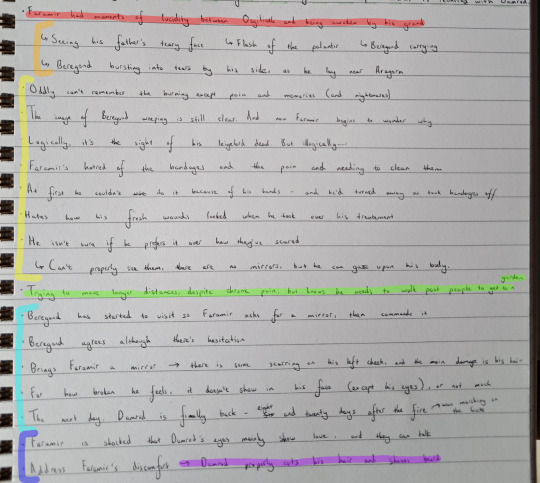 is reading with Damrod.
· Faramir had moments of lucidity between Osgiliath and being awoken by his
↳ Seeing his father's teary face ↳ Flash of the palantir ↳ Beregond carrying
↳ Beregond bursting into tears by his side, as he lay near Aragorn
· Oddly can't remember the burning except pain and memories (and nightmares)
· The image of Beregond weeping is still clear. And now Faramir begins to wonder why
· Logically, it's the sight of his leigelord dead. But illogically—
· Faramir's hatred of the bandages and the pain and needing to clean them
· At first he couldn't do it because of his hands - and he'd turned away as took bandages off
· Hates how his fresh wounds looked when he took over his treatment
· He isn't sure if he prefers it over how they've scared
↳ Can't properly see them, there are no mirrors, but he can gaze upon his body.
· Trying to move longer distances, despite chronic pain, but knows he needs to walk past people to get to garden
· Beregond has started to visit so Faramir asks for a mirror, then commands it
· Beregond agrees although there's hesitation
· Brings Faramir a mirror → there is some scarring on his left cheek, and the main damage is his hair
· For how broken he feels, it doesn't show in his face (except his eyes), or not much
· The next day, Damrod is finally back - eight and twenty days after the fire → was marching on the Gate
· Faramir is shocked that Damrod's eyes mainly show love, and they can talk
· Address Faramir's discomfort → Damrod properly cuts his hair and shaves beard